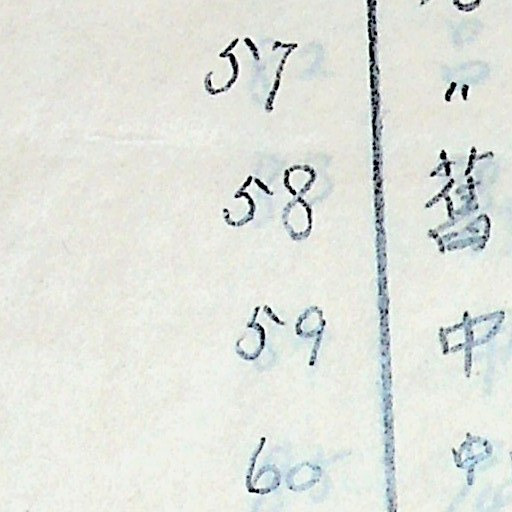 57 〃
58 舊
59 中
60 中